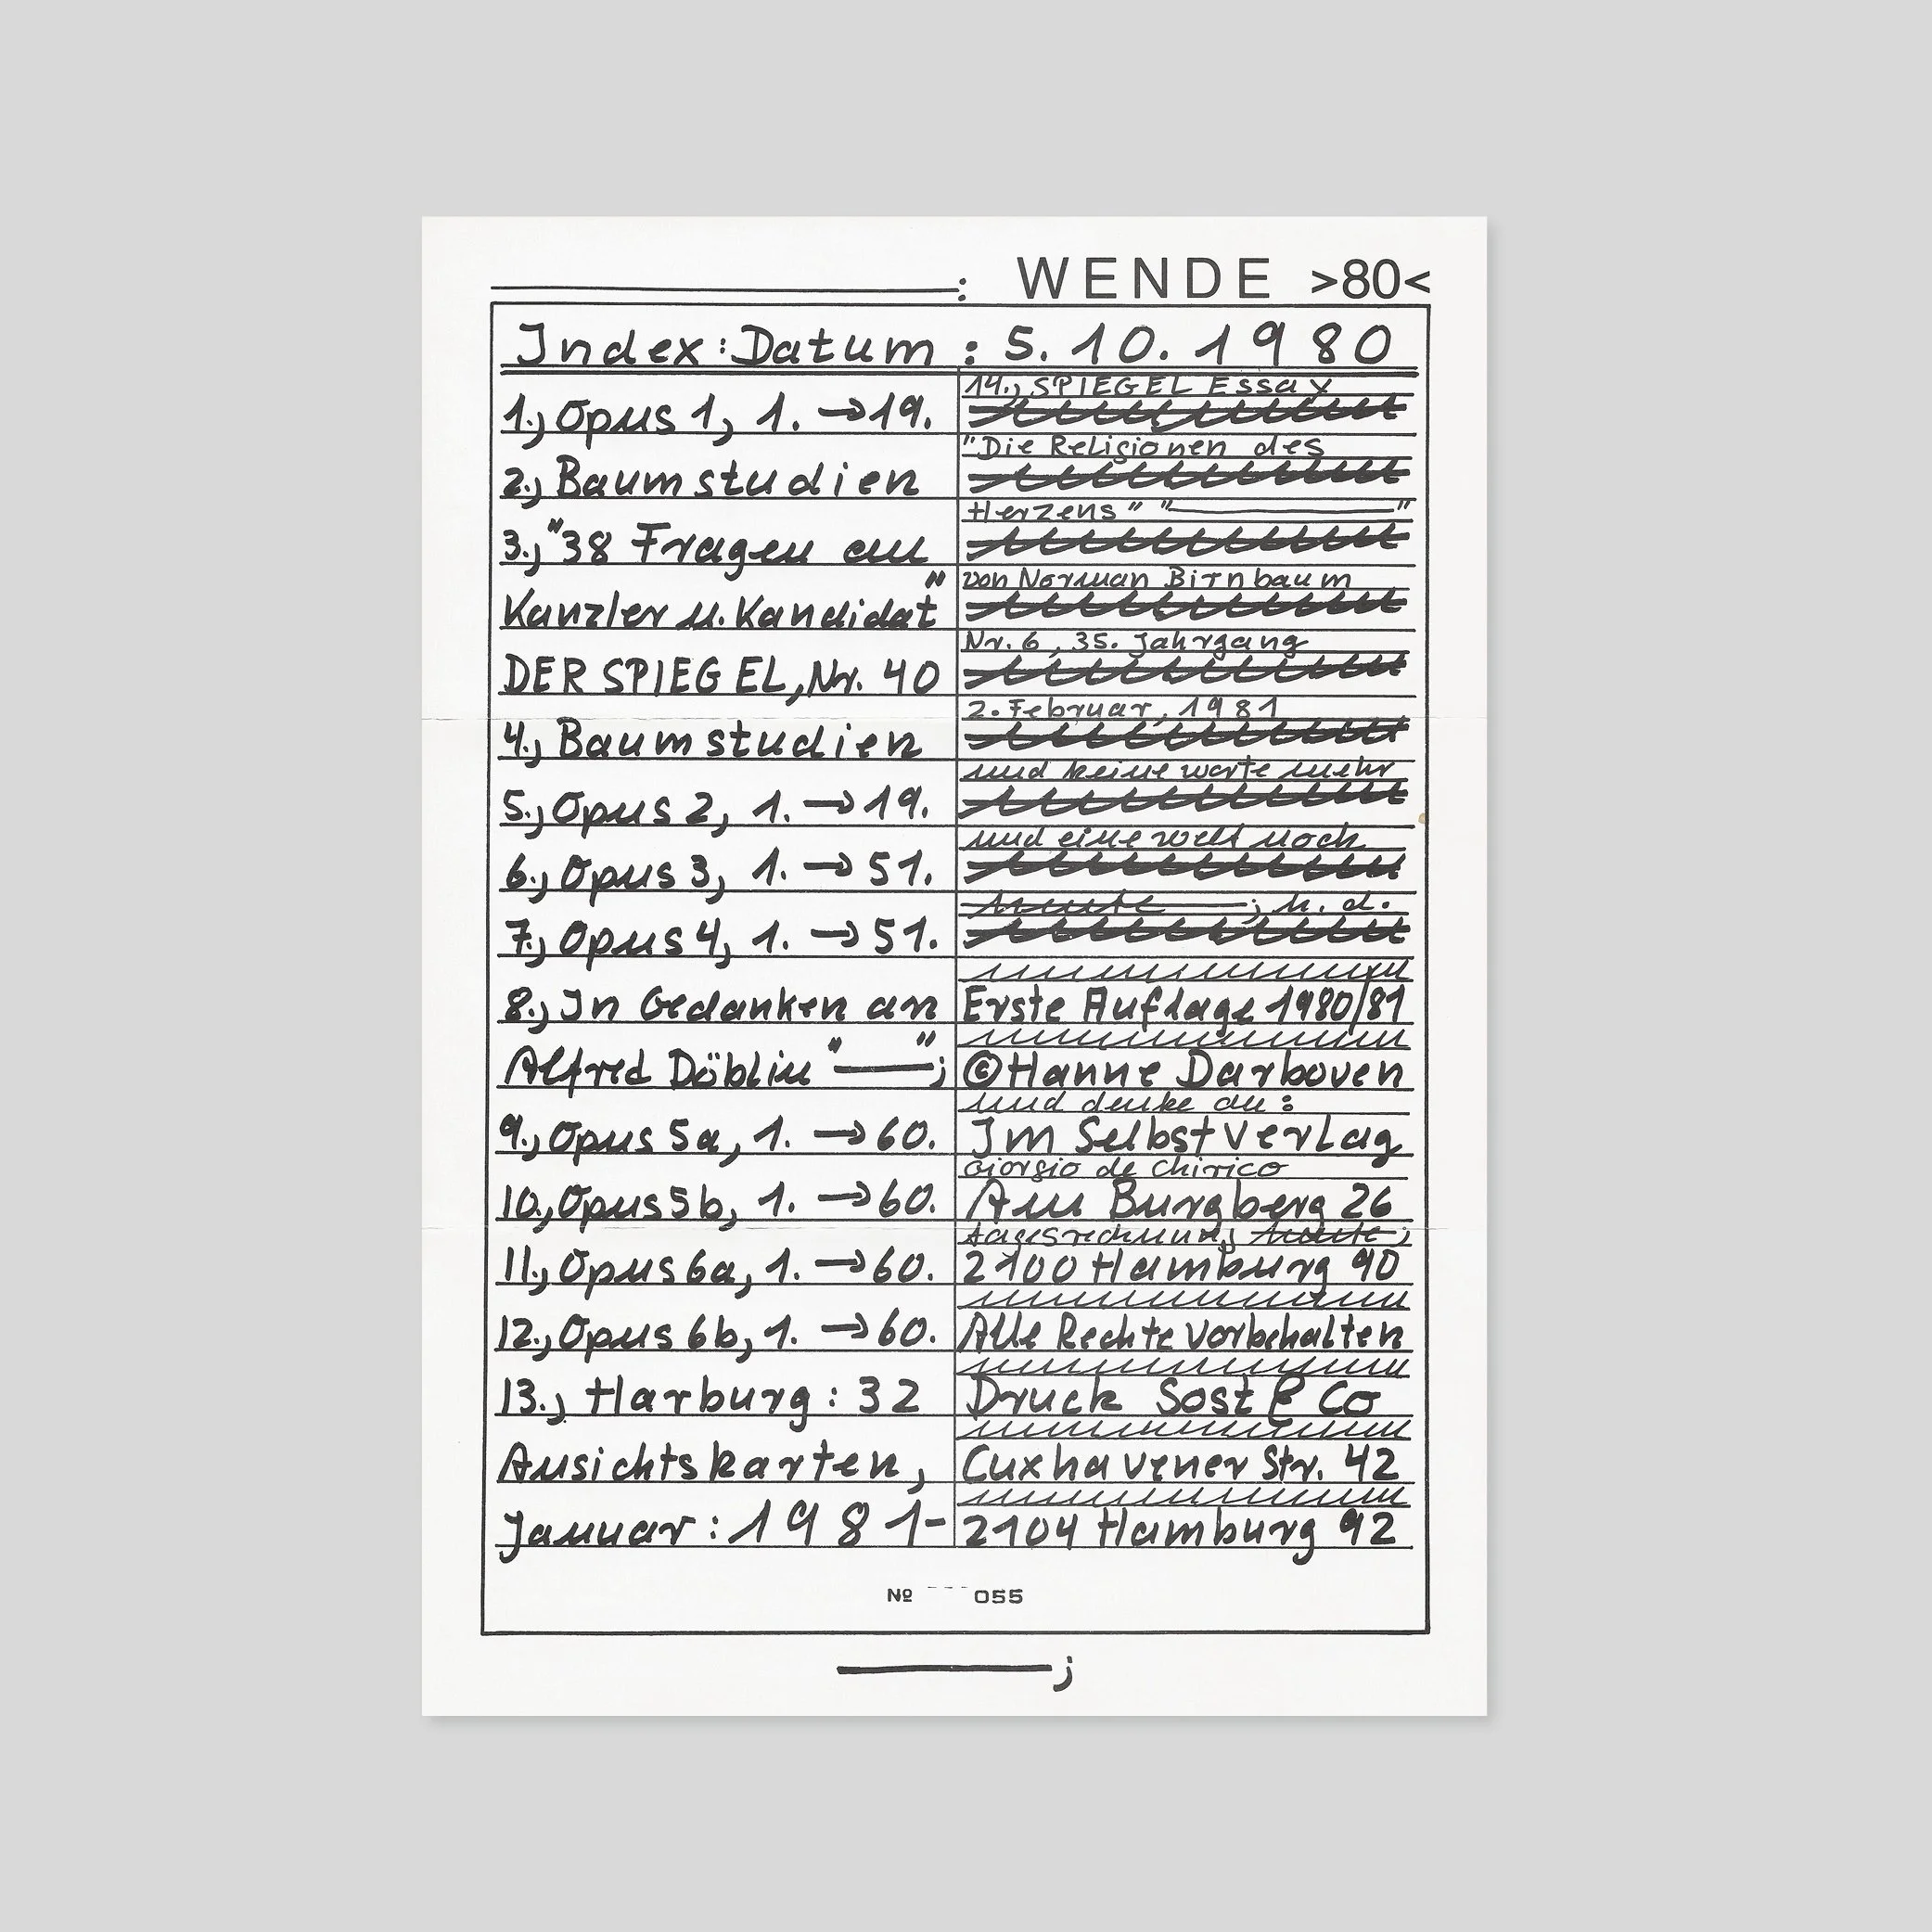 : WENDE >80<
Index: Datum : 5.10.1980
1., Opus 1, 1. → 19.
2., Baumstudien
3., "38 Fragen an
Kanzler u. Kandidat"
DER SPIEGEL, Nr. 40
4., Baumstudien
5., Opus 2, 1. → 19.
6., Opus 3, 1. → 51.
7., Opus 4, 1. → 51.
8., In Gedanken an
Alfred Döblin "——";
9., Opus 5a, 1. → 60.
10., Opus 5b, 1. → 60.
11., Opus 6a, 1. → 60.
12., Opus 6b, 1. → 60.
13., Harburg: 32
Ansichtskarten,
Januar: 1981-
14., SPIEGEL Essay
"Die Religionen des
Herzens" "——"
von Norman Birnbaum
Nr. 6, 35. Jahrgang
2. Februar, 1981
und keine worte mehr
und eine welt noch
heute ——; h. d.
Erste Auflage 1980/81
© Hanne Darboven
und denke an:
Im Selbstverlag
giorgio de chirico
Am Burgberg 26
tagesrechnung heute;
2100 Hamburg 90
Alle Rechte vorbehalten
Druck Sost & Co
Cuxhavener Str. 42
2104 Hamburg 92
№ 055
——;